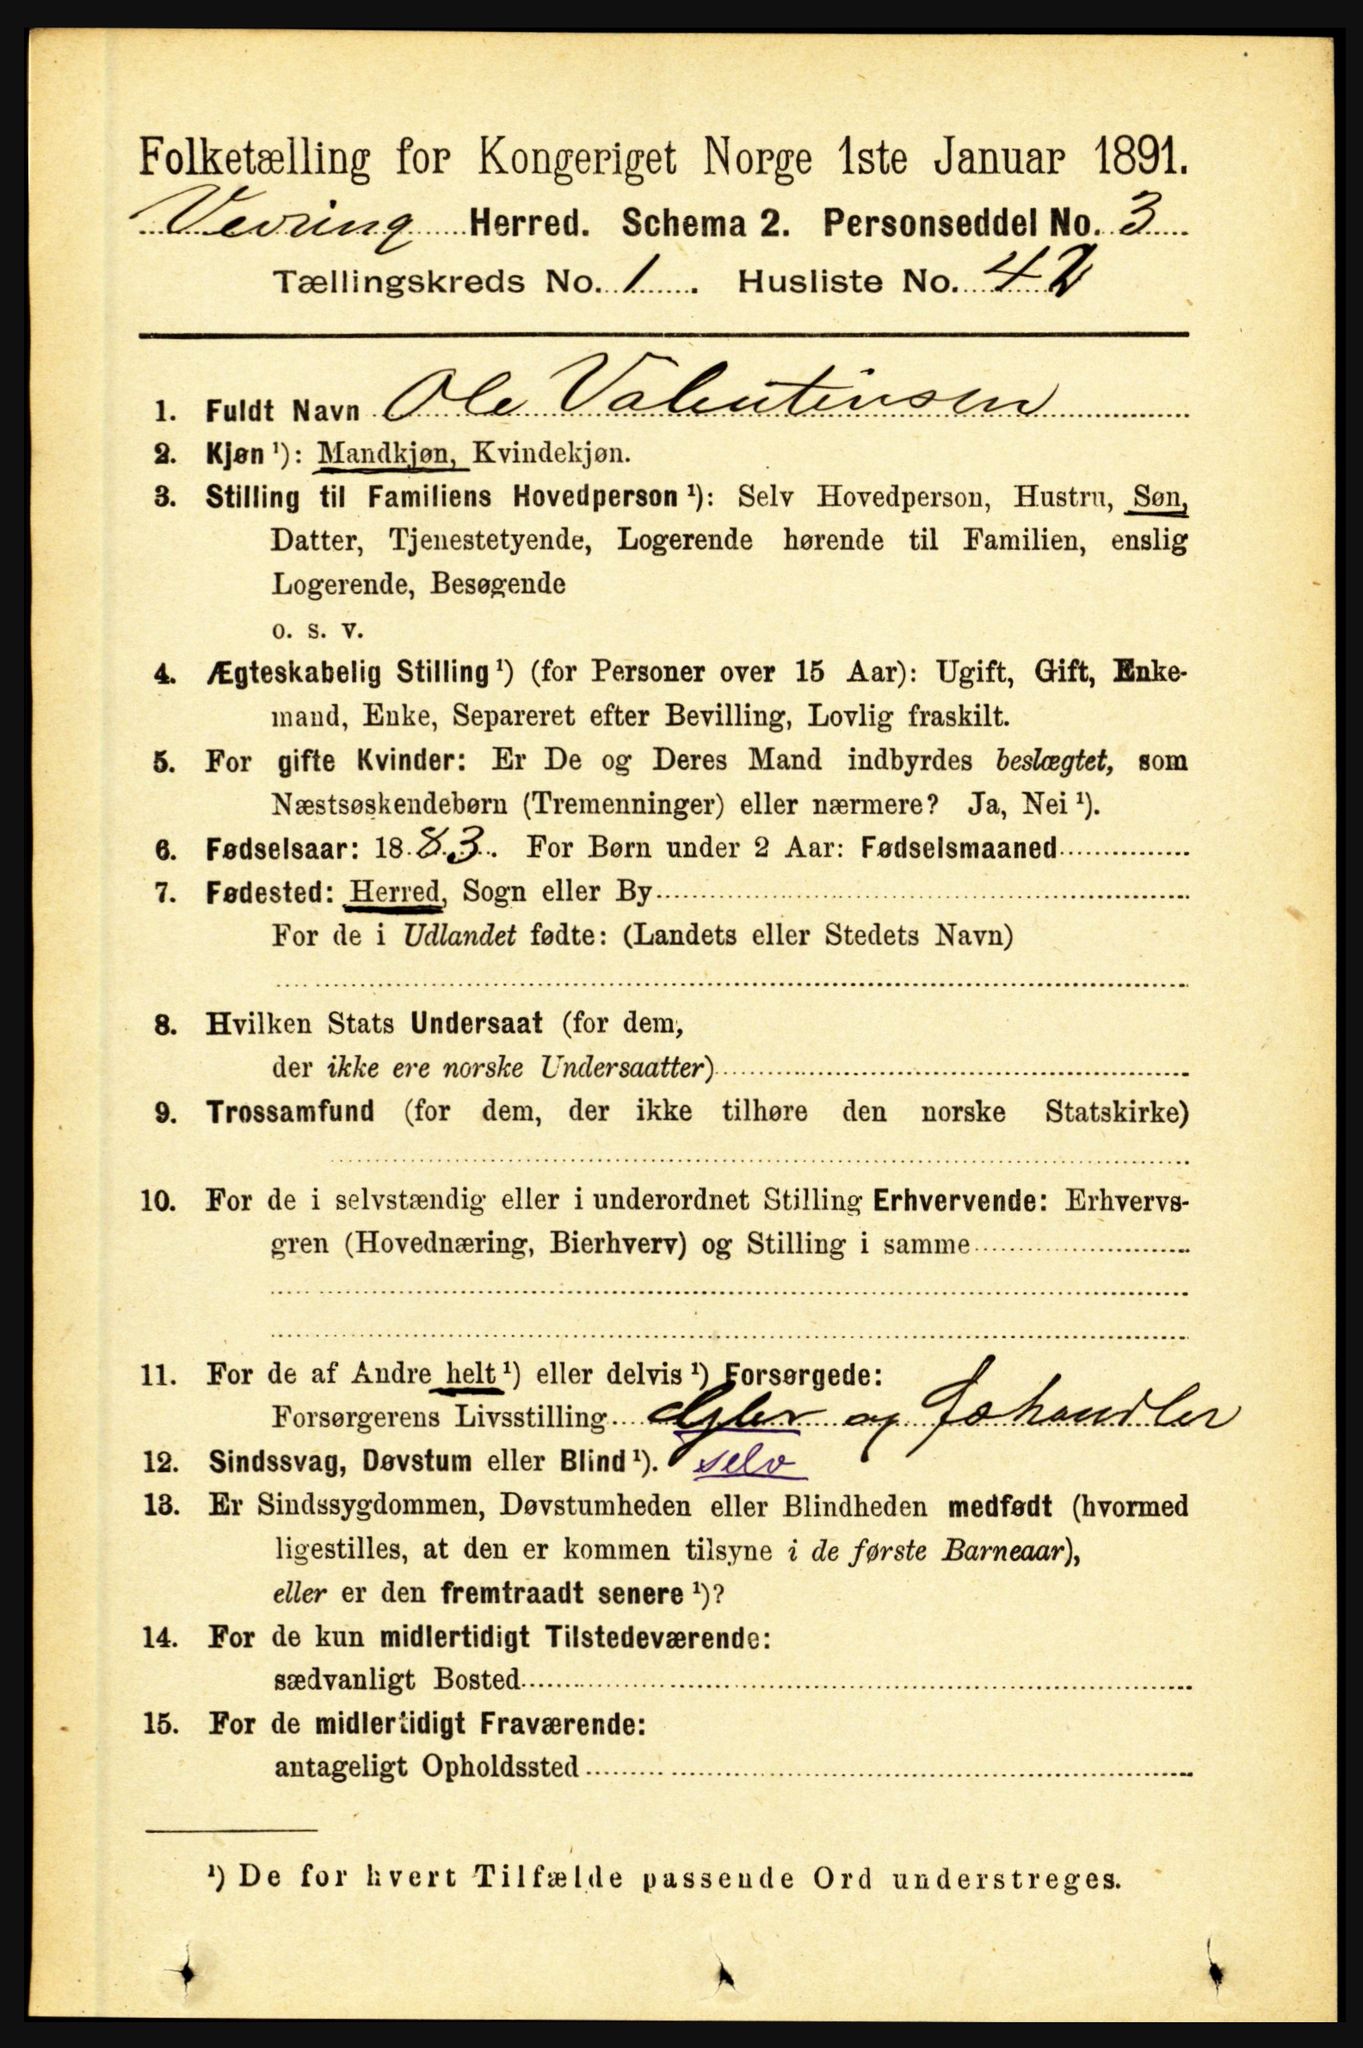 Folketælling for Kongeriget Norge 1ste Januar 1891.
Vevring Herred. Schema 2. Personseddel No. 3
Tællingskreds No. 1. Husliste No. 42
1. Fuldt Navn Ole Valentinsen
2. Kjøn ¹): Mandkjøn, Kvindekjøn.
3. Stilling til Familiens Hovedperson ¹): Selv Hovedperson, Hustru, Søn,
Datter, Tjenestetyende, Logerende hørende til Familien, enslig
Logerende, Besøgende
o. s. v.
4. Ægteskabelig Stilling ¹) (for Personer over 15 Aar): Ugift, Gift, Enke-
mand, Enke, Separeret efter Bevilling, Lovlig fraskilt.
5. For gifte Kvinder: Er De og Deres Mand indbyrdes beslægtet, som
Næstsøskendebørn (Tremenninger) eller nærmere? Ja, Nei ¹).
6. Fødselsaar: 1883. For Børn under 2 Aar: Fødselsmaaned
7. Fødested: Herred, Sogn eller By
For de i Udlandet fødte: (Landets eller Stedets Navn)
8. Hvilken Stats Undersaat (for dem,
der ikke ere norske Undersaatter)
9. Trossamfund (for dem, der ikke tilhøre den norske Statskirke)
10. For de i selvstændig eller i underordnet Stilling Erhvervende: Erhvervs-
gren (Hovednæring, Bierhverv) og Stilling i samme
11. For de af Andre helt ¹) eller delvis ¹) Forsørgede:
Forsørgerens Livsstilling og
12. Sindssvag, Døvstum eller Blind ¹). selv
13. Er Sindssygdommen, Døvstumheden eller Blindheden medfødt (hvormed
ligestilles, at den er kommen tilsyne i de første Barneaar),
eller er den fremtraadt senere ¹)?
14. For de kun midlertidigt Tilstedeværende:
sædvanligt Bosted
15. For de midlertidigt Fraværende:
antageligt Opholdssted
¹) De for hvert Tilfælde passende Ord understreges.